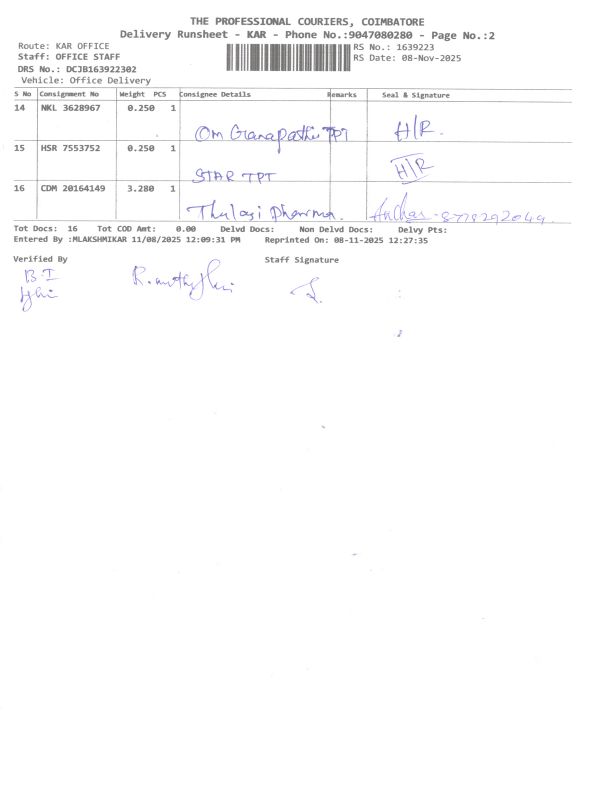 THE PROFESSIONAL COURIERS, COIMBATORE
Delivery Runsheet - KAR - Phone No.:9047080280 - Page No.:2
Route: KAR OFFICE
RS No.: 1639223
Staff: OFFICE STAFF
RS Date: 08-Nov-2025
DRS No.: DCJB163922302
Vehicle: Office Delivery
S No Consignment No Weight PCS Consignee Details Remarks Seal & Signature
14 NKL 3628967 0.250 1
Om Ganapathi TPT H/R.
15 HSR 7553752 0.250 1
STAR TPT H/R
16 CDM 20164149 3.280 1
Thulasi Pharma.
Tot Docs: 16 Tot COD Amt: 0.00 Delvd Docs: Non Delvd Docs: Delvy Pts:
Entered By :MLAKSHMIKAR 11/08/2025 12:09:31 PM Reprinted On: 08-11-2025 12:27:35
Verified By Staff Signature